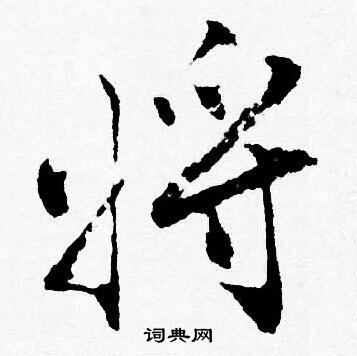 将
词典网